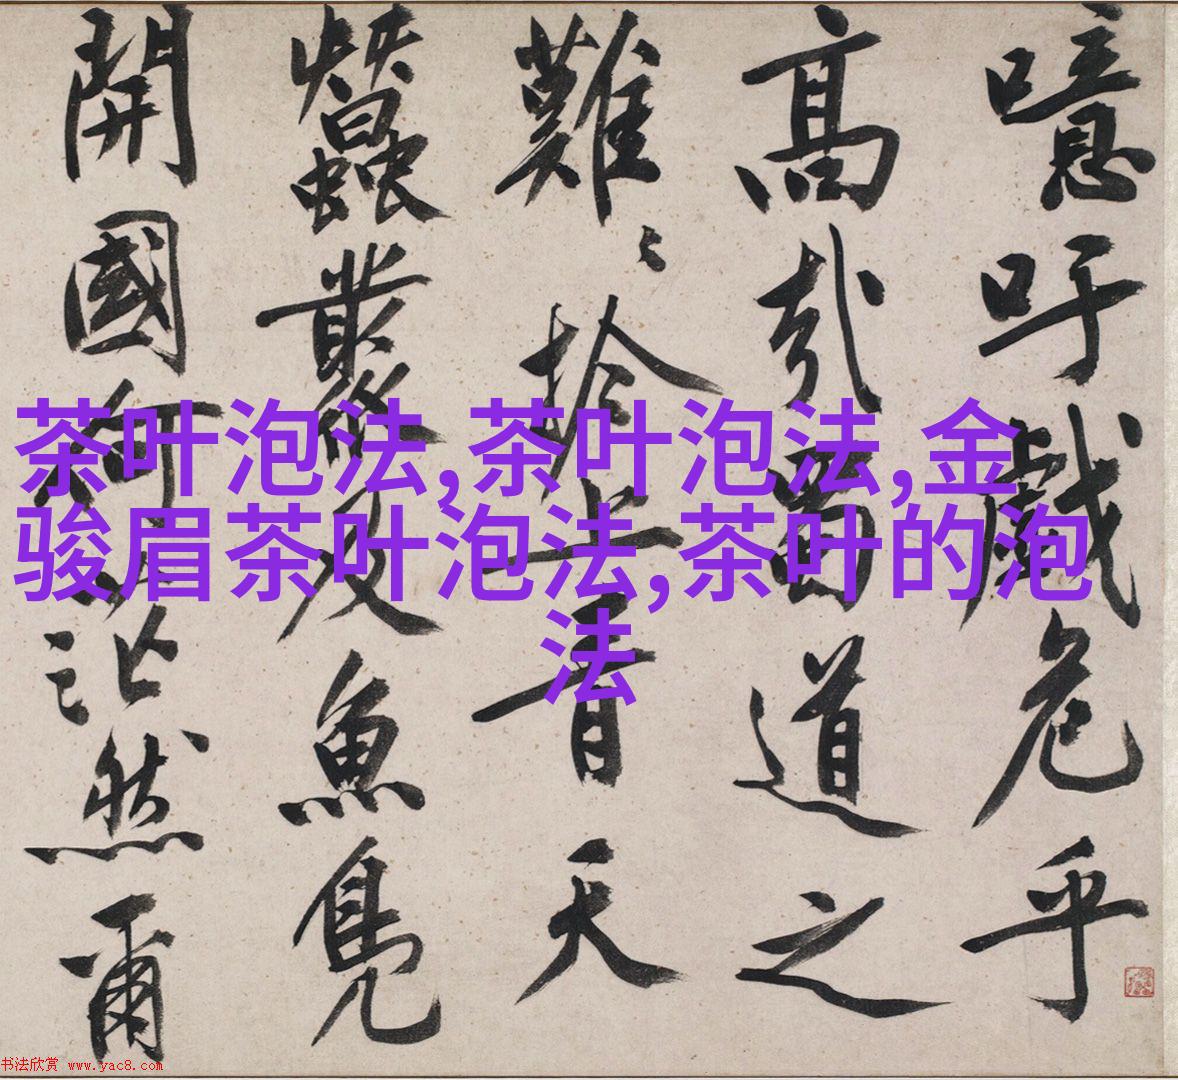 噫吁戲危乎
高哉蜀道之
難難扵上青天
蠶叢及魚鳧
開國何茫然爾
茶叶泡法,茶叶泡法,金
骏眉茶叶泡法,茶叶的泡
法
书法欣赏 www.yac8.com